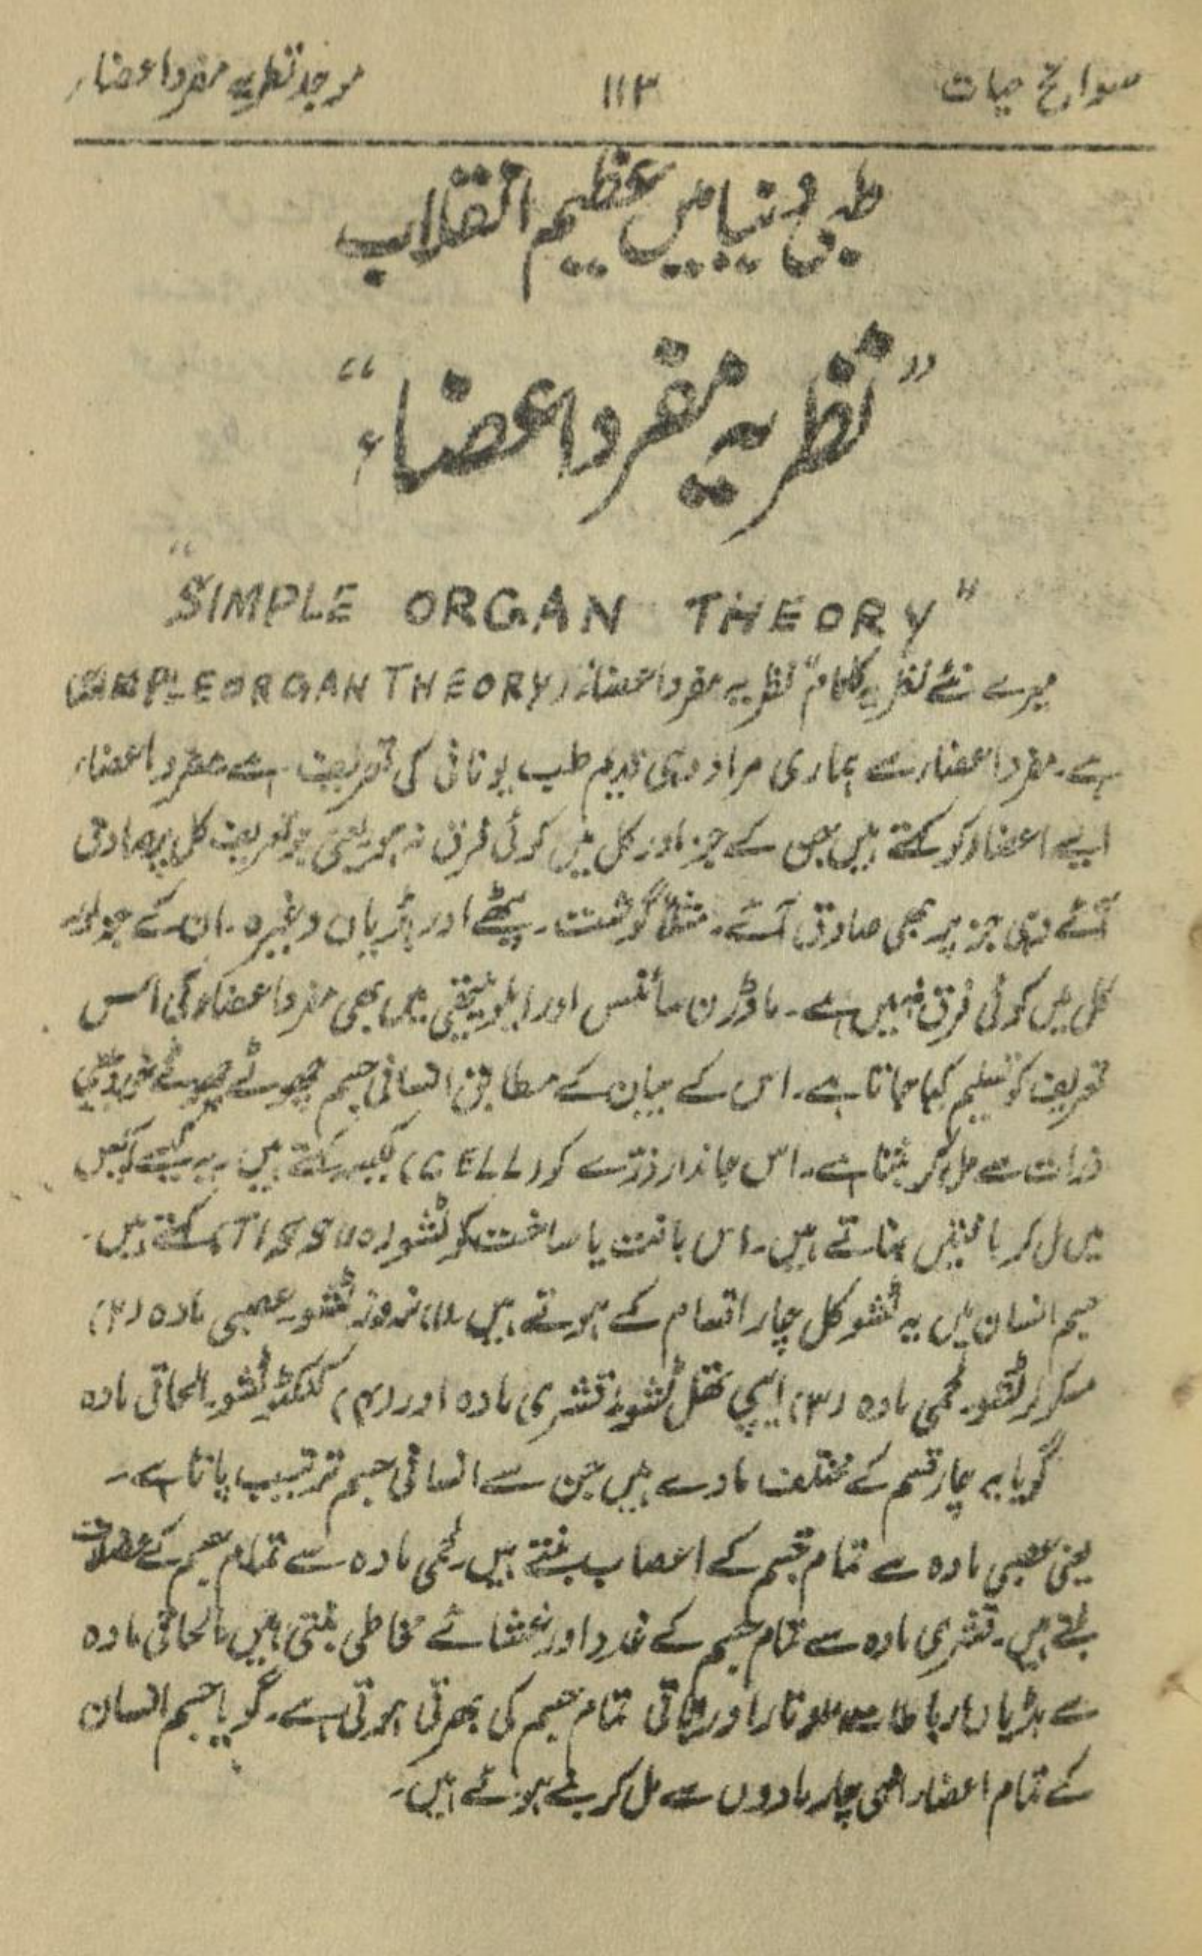 سوانح حیات ۱۱۳ موجد نظریہ مفرد اعضاء
طبی دنیا میں عظیم انقلاب
"نظریہ مفرد اعضاء"
"SIMPLE ORGAN THEORY"
میرے نئے نظریہ کا نام "نظریہ مفرد اعضاء (SIMPLE ORGAN THEORY)
ہے۔ مفرد اعضاء سے ہماری مراد وہی قدیم طب یونانی کی تعریف ہے مفرد اعضاء
ایسے اعضاء کو کہتے ہیں جس کے جز اور کل میں کوئی فرق نہ ہو یعنی جو تعریف کل پر صادق
آئے وہی جز پر بھی صادق آئے۔ مثلاً گوشت۔ پٹھے اور ہڈیاں وغیرہ۔ ان کے جز اور
کل میں کوئی فرق نہیں ہے۔ ماڈرن سائنس اور ایلوپیتھی میں بھی مفرد اعضاء کی اس
تعریف کو تسلیم کیا جاتا ہے۔ اس کے بیان کے مطابق انسانی جسم چھوٹے چھوٹے خوردبینی
ذرات سے مل کر بنتا ہے۔ اس جاندار ذرّے کو (CELL) کیسہ کہتے ہیں۔ یہ کیسے آپس
میں مل کر بافتیں بناتے ہیں۔ اس بافت یا ساخت کو ٹشو (TISSUE) کہتے ہیں۔
جسم انسان میں یہ ٹشو کل چار اقسام کے ہوتے ہیں (۱) نروز ٹشو۔ عصبی مادہ (۲)
مسکولر ٹشو۔ لحمی مادہ (۳) ایپی تھل ٹشو۔ قشری مادہ اور (۴) کنکٹو ٹشو۔ الحاقی مادہ
گویا یہ چار قسم کے مختلف مادے ہیں جن سے انسانی جسم ترتیب پاتا ہے۔
یعنی عصبی مادہ سے تمام جسم کے اعصاب بنتے ہیں۔ لحمی مادہ سے تمام جسم کے عضلات
بنتے ہیں۔ قشری مادہ سے تمام جسم کے غدد اور غشائے مخاطی بنتی ہیں۔ الحاقی مادہ
سے ہڈیاں، رباطات، اوتار اور باقی تمام جسم کی بھرتی ہوتی ہے۔ گویا جسم انسان
کے تمام اعضاء انہی چار مادوں سے مل کر بنے ہوئے ہیں۔